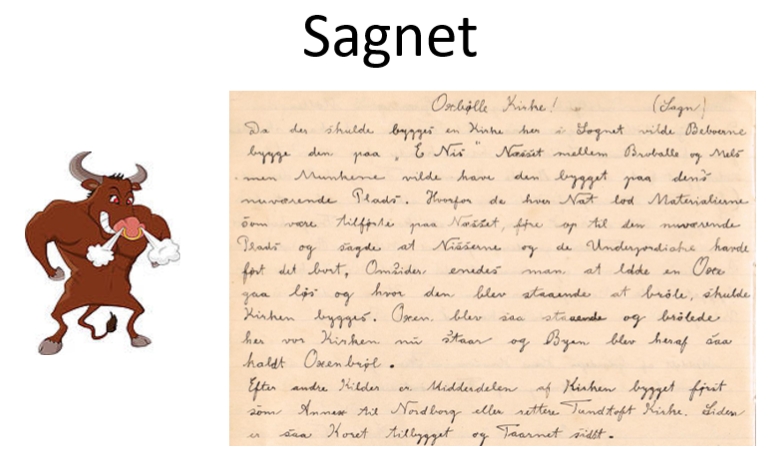 Sagnet
Oxbølle Kirke! (Sagn)
Da der skulde bygges en Kirke her i Sognet vilde Beboerne
bygge den paa "E Nis" Næsset mellem Broballe og Mels
men Munkene vilde have den bygget paa dens
nuværende Plads. Hvorfor de hver Nat lod Materialierne
som være tilførte paa Næsset, føre op til den nuværende
Plads og sagde at Nisserne og de Underjordiske havde
ført det bort, Omsider enedes man at lade en Oxe
gaa løs og hvor den blev staaende at brøle, skulde
Kirken bygges. Oxen blev saa staaende og brølede
her vor Kirken nu Staar og Byen blev heraf saa
kaldt Oxenbrøl.
Efter andre Kilder er Midderdelen af Kirken bygget først
som Annex til Nordborg eller rettere Tundtoft Kirke. Siden
er saa Koret tilbygget og Taarnet sidst.